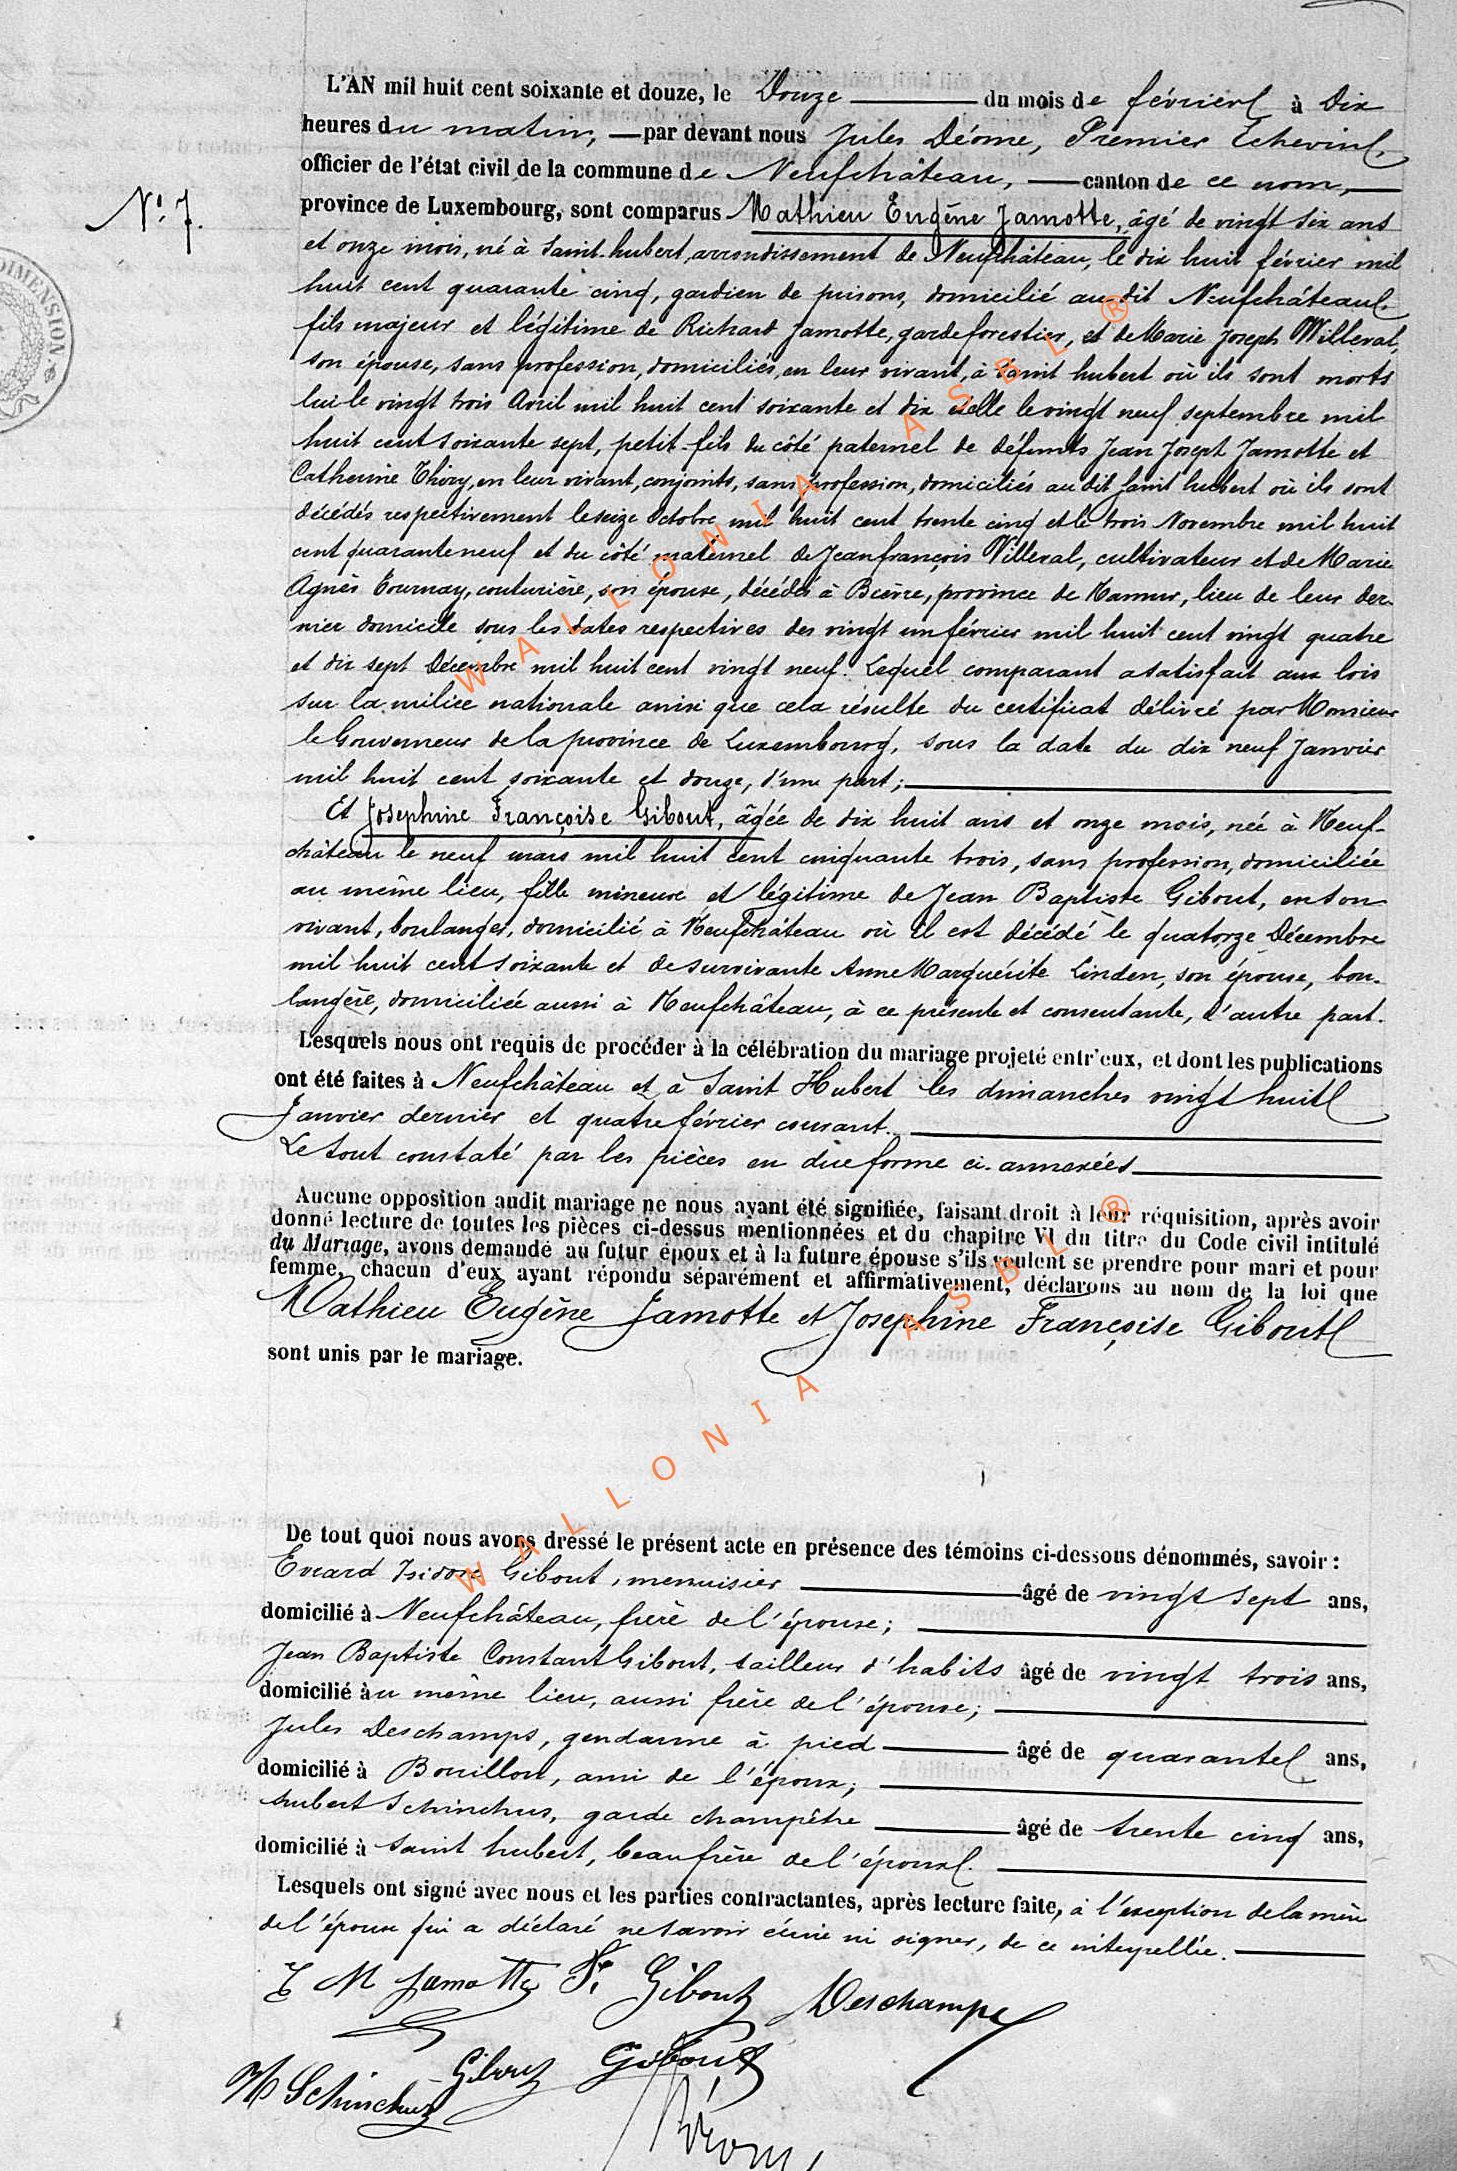 L'AN mil huit cent soixante et douze, le Douze du mois de février à dix
heures du matin, par devant nous Jules Déome, Premier Echevin,
officier de l'état civil de la commune de Neufchâteau, canton de ce nom,
N° 7.
province de Luxembourg, sont comparus Mathieu Eugène Jamotte, âgé de vingt six ans
et onze mois, né à Saint-hubert, arrondissement de Neufchâteau, le dix huit février mil
huit cent quarante cinq, gardien de prisons, domicilié au dit Neufchâteau,
fils majeur et légitime de Richard Jamotte, garde forestier, et de Marie Joseph Willeval,
son épouse, sans profession, domiciliés, en leur vivant, à Saint hubert où ils sont morts
lui le vingt trois Avril mil huit cent soixante et dix et elle le vingt neuf septembre mil
huit cent soixante sept, petit-fils du côté paternel de défunts Jean Joseph Jamotte et
Catherine Thiry, en leur vivant, conjoints, sans profession, domiciliés au dit Saint hubert où ils sont
décédés respectivement le seize Octobre mil huit cent trente cinq et le trois Novembre mil huit
cent quarante neuf et du côté maternel de Jean françois Villeval, cultivateur et de Marie
Agnès Tournay, couturière, son épouse, décédés à Bièvre, province de Namur, lieu de leur der-
nier domicile sous les dates respectives des vingt un février mil huit cent vingt quatre
et dix sept Décembre mil huit cent vingt neuf. Lequel comparant a satisfait aux lois
sur la milice nationale ainsi que cela résulte du certificat délivré par Monsieur
le Gouverneur de la province de Luxembourg, sous la date du dix neuf Janvier
mil huit cent soixante et douze, d'une part;
Et Josephine Françoise Gibout, âgée de dix huit ans et onze mois, née à Neuf-
château le neuf mars mil huit cent cinquante trois, sans profession, domiciliée
au même lieu, fille mineure et légitime de Jean Baptiste Gibout, en son
vivant, boulanger, domicilié à Neufchâteau où il est décédé le quatorze Décembre
mil huit cent soixante et de survivante Anne Marguérite Linden, son épouse, bou-
langère, domiciliée aussi à Neufchâteau, à ce présente et consentante, d'autre part.
Lesquels nous ont requis de procéder à la célébration du mariage projeté entr'eux, et dont les publications
ont été faites à Neufchâteau et à Saint Hubert les dimanches vingt huit
Janvier dernier et quatre février courant.
Le tout constaté par les pièces en due forme ci-annexées
Aucune opposition audit mariage ne nous ayant été signifiée, faisant droit à leur réquisition, après avoir
donné lecture de toutes les pièces ci-dessus mentionnées et du chapitre VI du titre du Code civil intitulé
du Mariage, avons demandé au futur époux et à la future épouse s'ils veulent se prendre pour mari et pour
femme, chacun d'eux ayant répondu séparément et affirmativement, déclarons au nom de la loi que
Mathieu Eugène Jamotte et Josephine Françoise Gibout
sont unis par le mariage.
De tout quoi nous avons dressé le présent acte en présence des témoins ci-dessous dénommés, savoir :
Evrard Isidore Gibout, menuisier âgé de vingt sept ans,
domicilié à Neufchâteau, frère de l'épouse;
Jean Baptiste Constant Gibout, tailleur d'habits âgé de vingt trois ans,
domicilié au même lieu, aussi frère de l'épouse;
Jules Deschamps, gendarme à pied âgé de quarante ans,
domicilié à Bouillon, ami de l'époux;
hubert Schinckus, garde champêtre âgé de trente cinq ans,
domicilié à Saint hubert, beau frère de l'époux.
Lesquels ont signé avec nous et les parties contractantes, après lecture faite, à l'exception de la mère
de l'épouse qui a déclaré ne savoir écrire ni signer, de ce interpellée.
E M Jamotte Gibout Deschamps
H Schinckus Gibout Gibout
Déome
DIMENSION
WALLONIA ASBL ®
WALLONIA ASBL ®